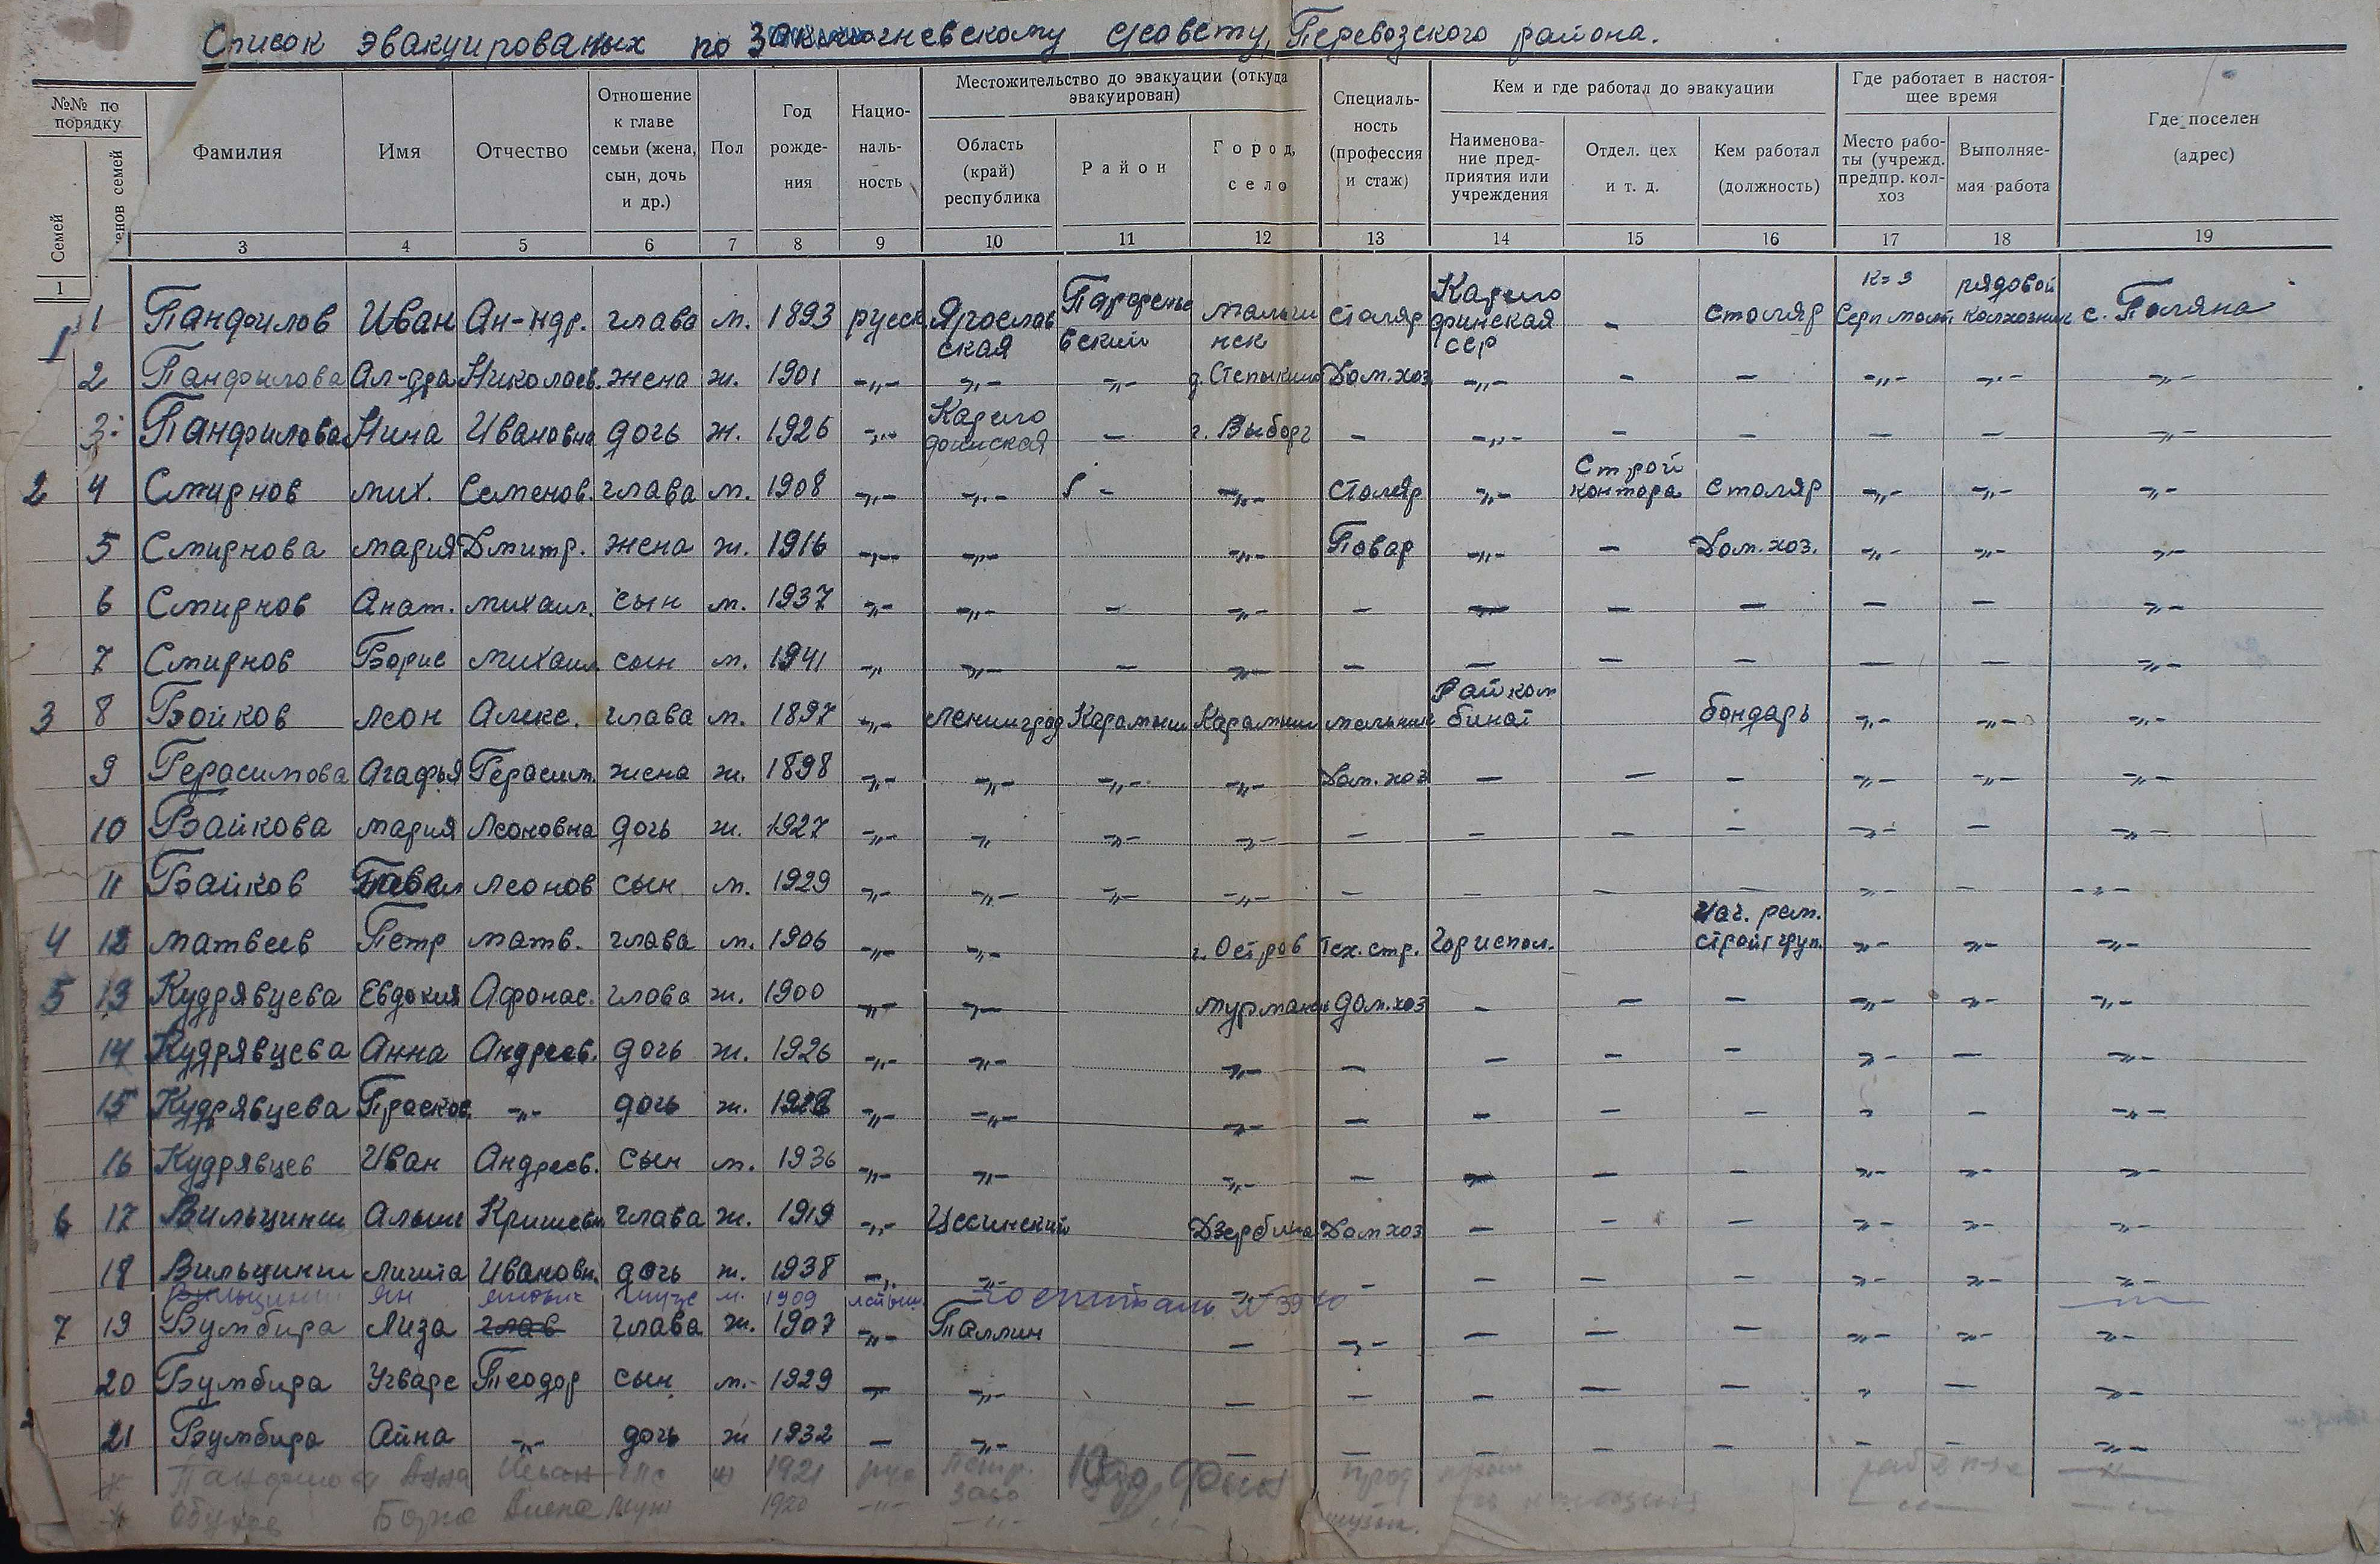 Список эвакуированых по сельсовету, Перевозского района.
№№ по порядку
Семей
членов семей
Фамилия
Имя
Отчество
Отношение к главе семьи (жена, сын, дочь и др.)
Пол
Год рождения
Национальность
Местожительство до эвакуации (откуда эвакуирован)
Область (край) республика
Район
Город, село
Специальность (профессия и стаж)
Кем и где работал до эвакуации
Наименование предприятия или учреждения
Отдел. цех и т. д.
Кем работал (должность)
Где работает в настоящее время
Место работы (учрежд. предпр. колхоз
Выполняемая работа
Где поселен (адрес)
1 3 4 5 6 7 8 9 10 11 12 13 14 15 16 17 18 19
1 1 Панфилов Иван Ал-ндр. глава м. 1893 русск Ярославская столяр Карело финская сср – столяр к-з Серп мол. рядовой колхозник с. Поляна
2 Панфилова Ал-дра Николаев. жена ж. 1901 -„- -„- -„- Дом.хоз. -„- – – -„- -„- -„-
3 Панфилова Нина Ивановна дочь ж. 1926 -„- Карело финская – г. Выборг – -„- – – – – -„-
2 4 Смирнов Мих. Семенов. глава м. 1908 -„- -„- – -„- столяр -„- Строй контора столяр -„- -„- -„-
5 Смирнова Мария Дмитр. жена ж. 1916 -„- -„- -„- Повар -„- – Дом.хоз. -„- -„- -„-
6 Смирнов Анат. Михаил. сын м. 1937 -„- -„- – -„- – – – – – – -„-
7 Смирнов Борис Михаил сын м. 1941 -„- -„- – -„- – – – – – – -„-
3 8 Бойков Леон Алекс. глава м. 1897 -„- Ленинград Карамыш Карамыш мельник Райком бинат бондарь -„- -„- -„-
9 Герасимова Агафья Герасим. жена ж. 1898 -„- -„- -„- -„- Дом.хоз – – – -„- -„- -„-
10 Байкова Мария Леоновна дочь ж. 1927 -„- -„- -„- -„- – – – – -„- – -„-
11 Байков Павел Леонов сын м. 1929 -„- -„- -„- -„- – – – – -„- – -„-
4 12 Матвеев Петр Матв. глава м. 1906 -„- -„- г. Остров Тех. стр. Гориспол. Нач. рем. строй груп. -„- -„- -„-
5 13 Кудрявцева Евдокия Афонас. глава ж. 1900 -„- -„- Мурманск дом.хоз – – – -„- -„- -„-
14 Кудрявцева Анна Андреев. дочь ж. 1926 -„- -„- -„- – – – – -„- – -„-
15 Кудрявцева Просков. -„- дочь ж. -„- -„- -„- – – – – „ – -„-
16 Кудрявцев Иван Андреев. сын м. 1936 -„- -„- -„- – – – – -„- -„- -„-
6 17 Вильцинш Глава ж. 1919 -„- Цесинский Дом хоз – – – -„- -„- -„-
18 Вильцинш Лигита Ивановн. дочь ж. 1938 -„- -„- -„- – – – – -„- -„- -„-
Вильцинш Ян м. 1909 латыш Госпиталь
7 19 Бумбира Лиза глав глава ж. 1907 -„- Таллин – -„- – – – -„- -„- -„-
20 Бумбира Теодор сын м. 1929 – -„- – – – – – „ – -„-
21 Бумбира Айна -„- дочь ж 1932 – -„- – – – – – – – -„-
Панфилова 1921
1920